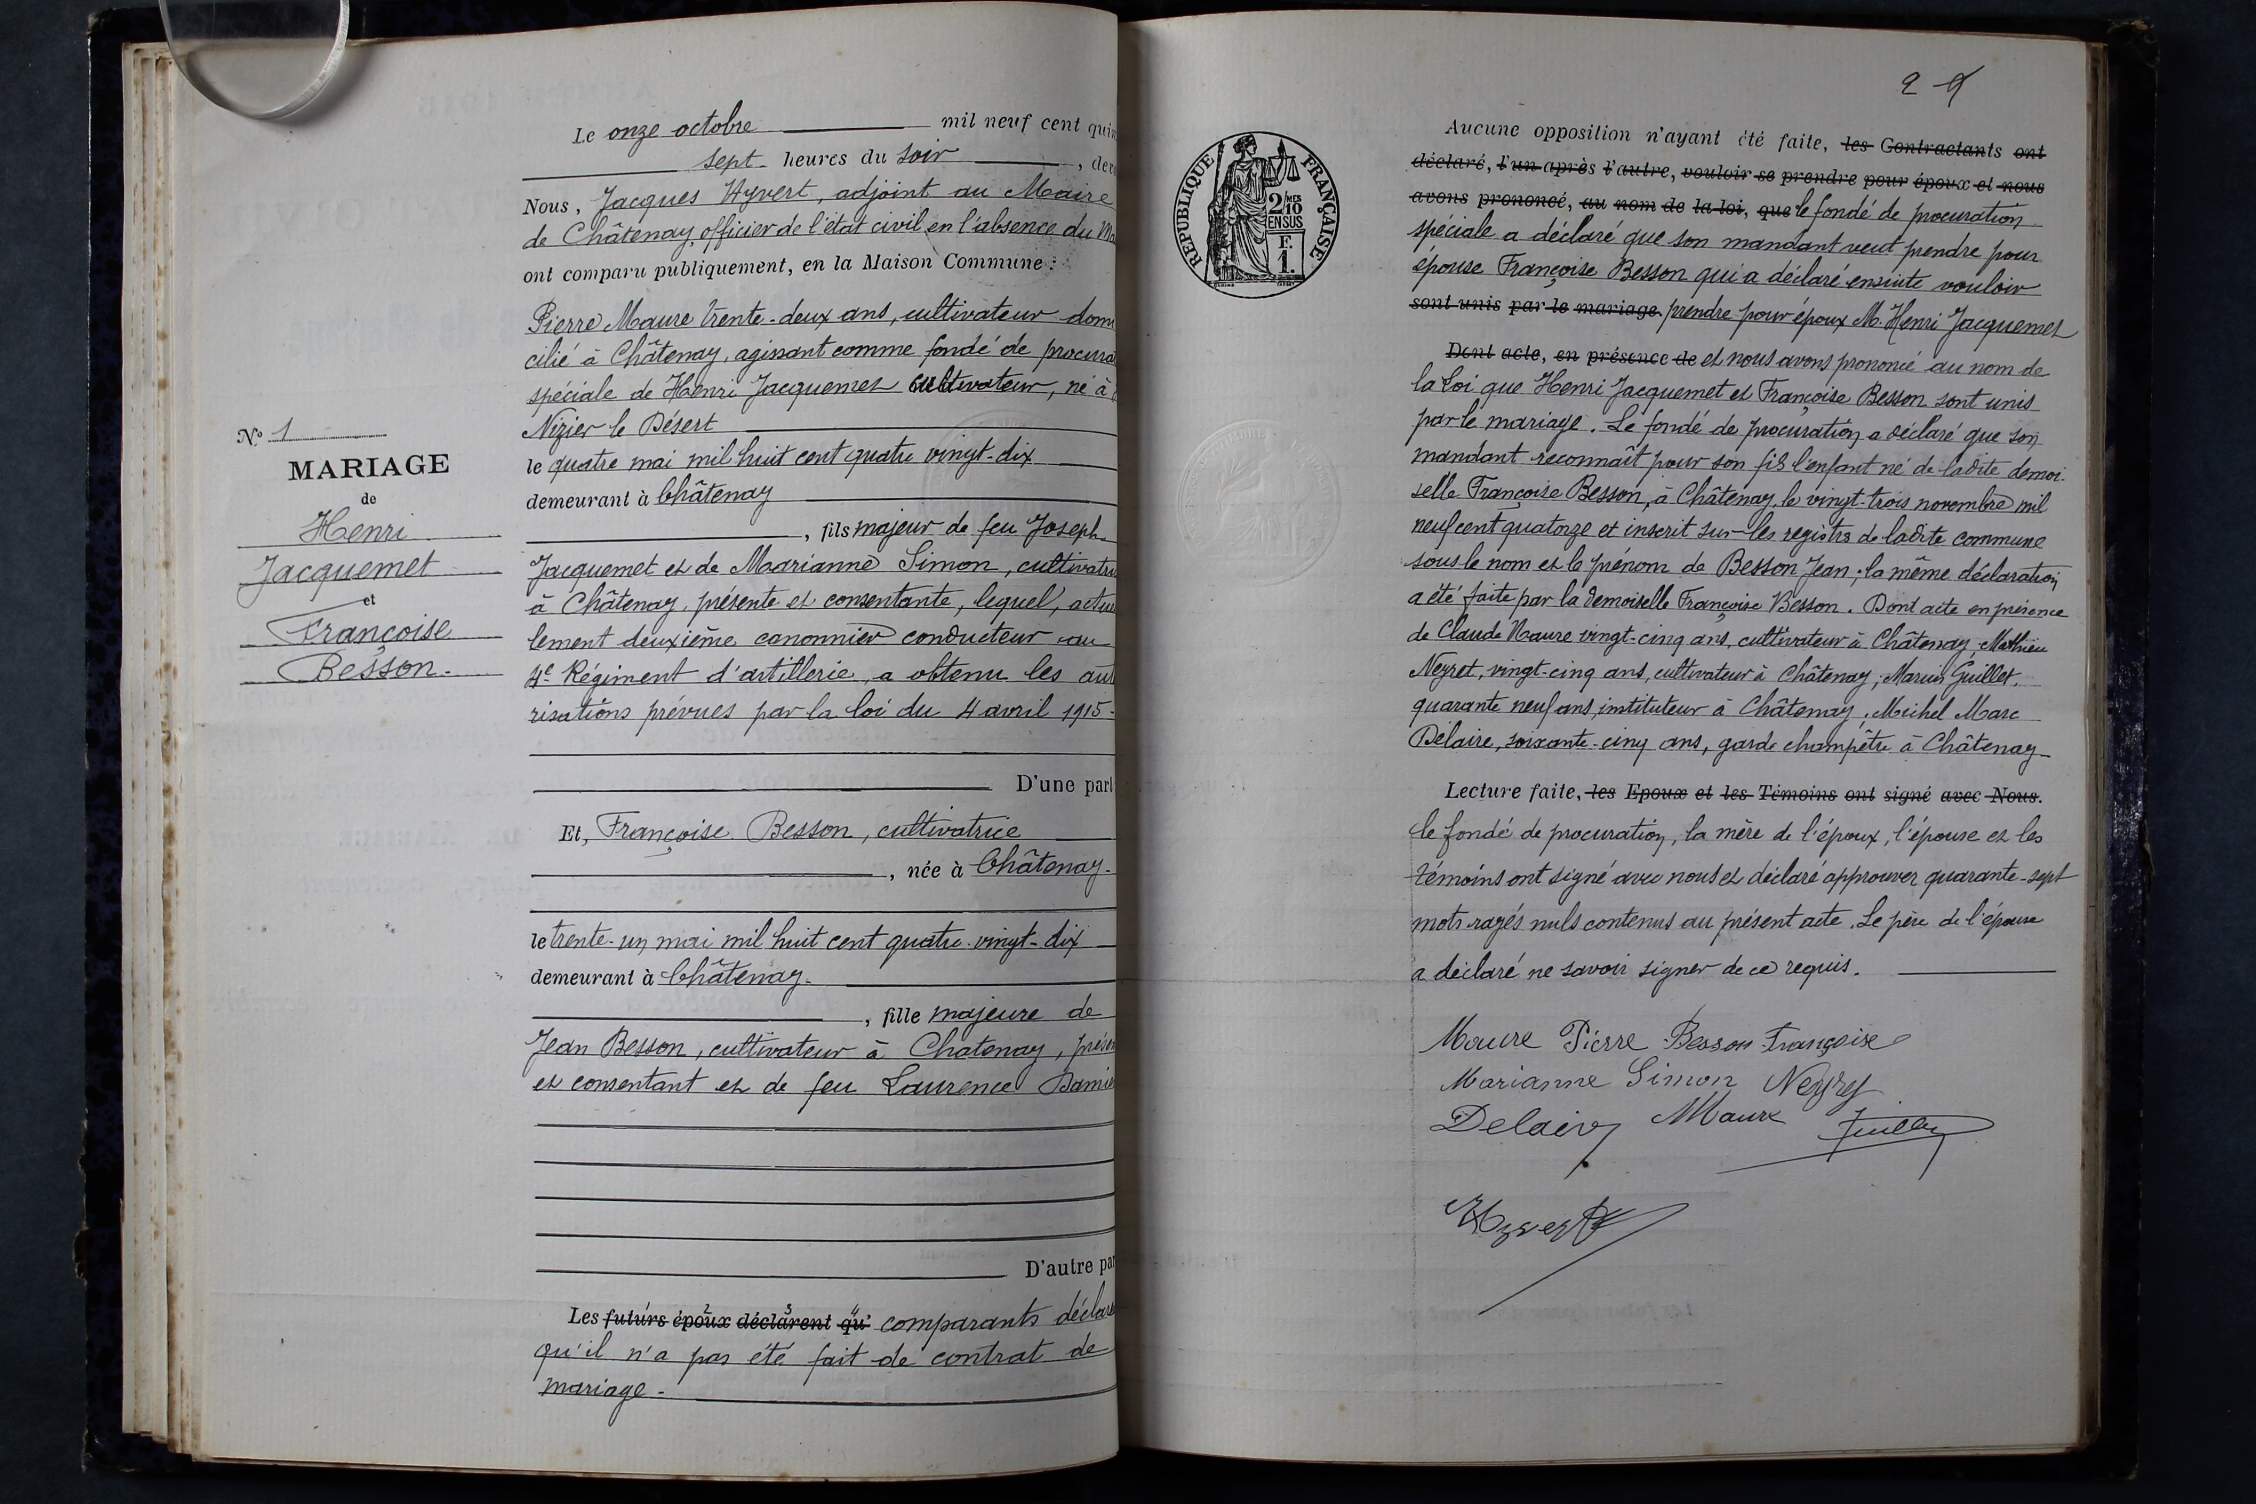 Le onze octobre mil neuf cent quin
sept heures du soir, dev
Nous, Jacques Hyvert, adjoint au Maire
de Châtenay, officier de l'état civil en l'absence du Ma
ont comparu publiquement, en la Maison Commune :
Pierre Maure trente-deux ans, cultivateur domi
cilié à Châtenay, agissant comme fondé de procura
spéciale de Henri Jacquemet cultivateur, né à
Nizier le Désert
le quatre mai mil huit cent quatre vingt-dix
demeurant à Châtenay
, fils majeur de feu Joseph
Jacquemet et de Marianne Simon, cultivatri
à Châtenay, présente et consentante, lequel, actuel
lement deuxième canonnier conducteur au
4e Régiment d'artillerie, a obtenu les auto
risations prévues par la loi du 4 avril 1915-
D'une part
Et, Françoise Besson, cultivatrice
, née à Châtenay-
le trente-un mai mil huit cent quatre-vingt-dix
demeurant à Châtenay-
, fille majeure de
Jean Besson, cultivateur à Chatenay, présen
et consentant et de feu Laurence Damie
D'autre par
Les futurs époux déclarent qu' comparants déclare
qu'il n'a pas été fait de contrat de
mariage-
No 1
MARIAGE
de
Henri
Jacquemet
et
Françoise
Besson.
REPUBLIQUE FRANÇAISE
2 MES
10
EN SUS
F.
1.
2
Aucune opposition n'ayant été faite, les Contractants ont
déclaré, l'un après l'autre, vouloir se prendre pour époux et nous
avons prononcé, au nom de la loi, que le fondé de procuration
spéciale a déclaré que son mandant veut prendre pour
épouse Françoise Besson qui a déclaré ensuite vouloir
sont unis par le mariage. prendre pour époux M. Henri Jacquemet
Dont acte, en présence de et nous avons prononcé au nom de
la Loi que Henri Jacquemet et Françoise Besson sont unis
par le mariage. Le fondé de procuration a déclaré que son
mandant reconnaît pour son fils l'enfant né de ladite demoi-
selle Françoise Besson, à Châtenay, le vingt-trois novembre mil
neuf cent quatorze et inscrit sur les registres de ladite commune
sous le nom et le prénom de Besson Jean ; la même déclaration
a été faite par la demoiselle Françoise Besson. Dont acte en présence
de Claude Maure vingt-cinq ans, cultivateur à Châtenay, Mathieu
Neyret, vingt-cinq ans, cultivateur à Châtenay, Marius Guillet,
quarante neuf ans, instituteur à Châtenay, Michel Marc
Delaire, soixante-cinq ans, garde champêtre à Châtenay
Lecture faite, les Epoux et les Témoins ont signé avec Nous.
le fondé de procuration, la mère de l'époux, l'épouse et les
témoins ont signé avec nous et déclaré approuver quarante-sept
mots rayés nuls contenus au présent acte. Le père de l'épouse
a déclaré ne savoir signer de ce requis.
Maure Pierre Besson Françoise
Marianne Simon Neyret
Delaire Maure Guillet
Hyvert